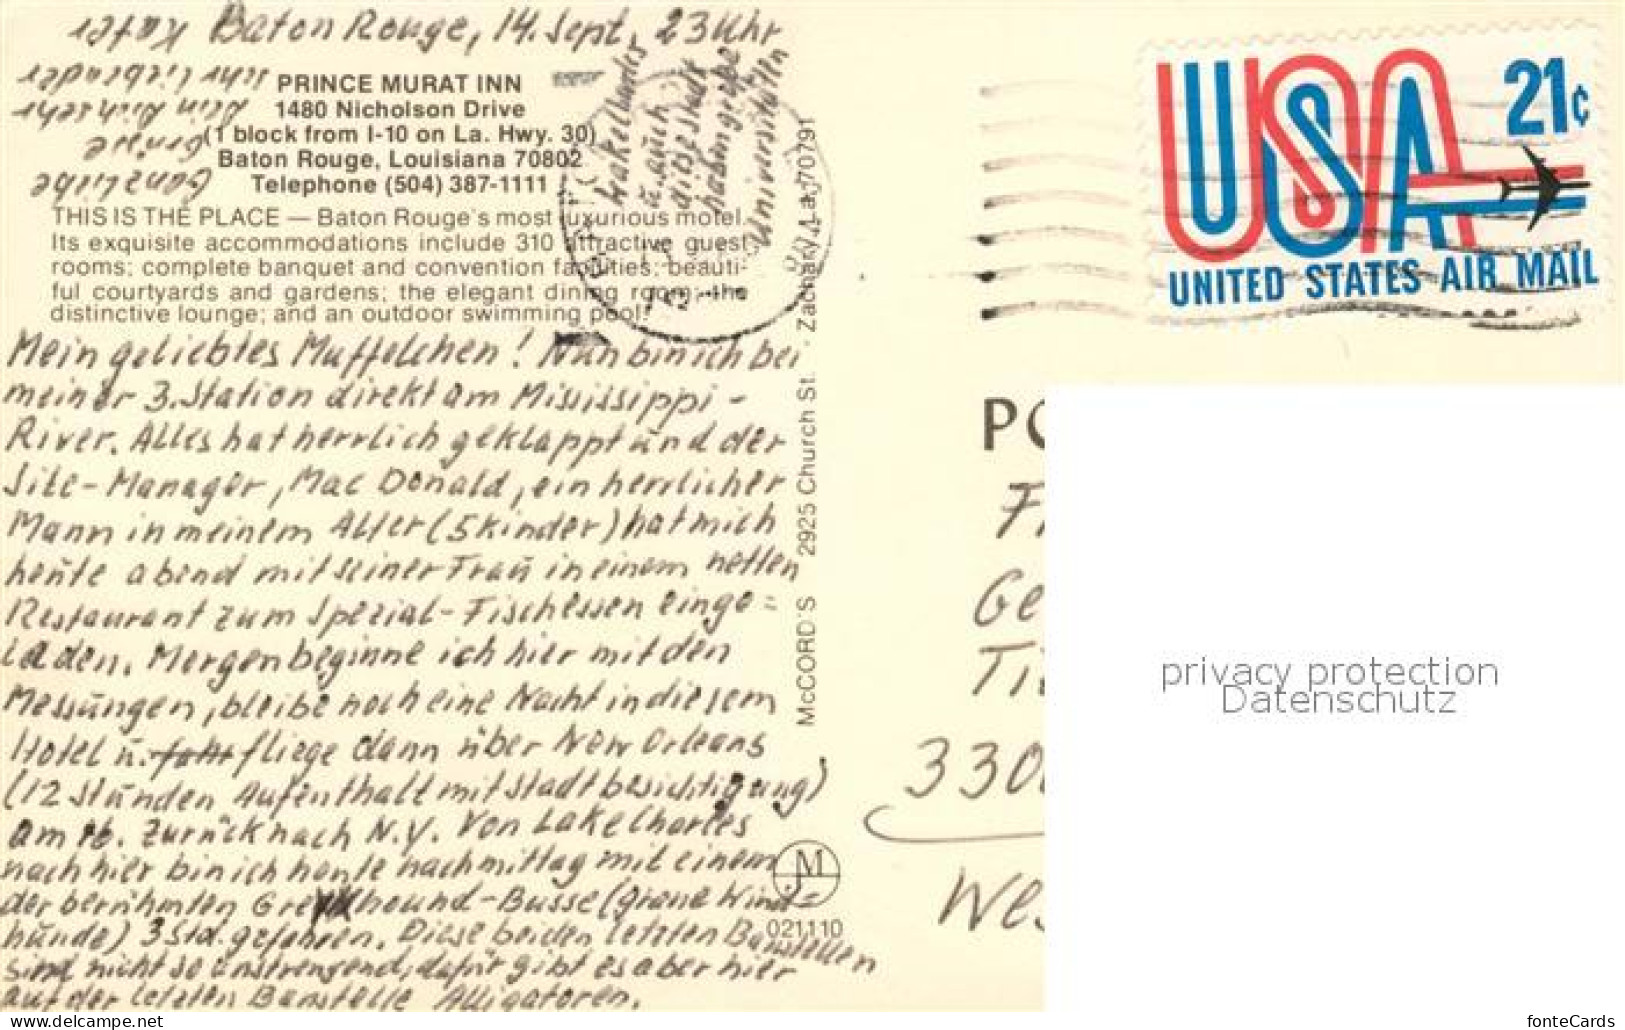 Baton Rouge, 14. Sept. 23 Uhr
PRINCE MURAT INN
1480 Nicholson Drive
(1 block from I-10 on La. Hwy. 30)
Baton Rouge, Louisiana 70802
Telephone (504) 387-1111
THIS IS THE PLACE — Baton Rouge's most luxurious motel.
Its exquisite accommodations include 310 attractive guest
rooms; complete banquet and convention facilities; beauti-
ful courtyards and gardens; the elegant dining room; the
distinctive lounge; and an outdoor swimming pool!
Mein geliebtes Muffelchen! Nun bin ich bei
meiner 3. Station direkt am Mississippi-
River. Alles hat herrlich geklappt und der
Site-Manager, Mac Donald, ein herrlicher
Mann in meinem Alter (5 Kinder) hat mich
heute abend mit seiner Frau in einem netten
Restaurant zum Spezial-Fischessen einge=
laden. Morgen beginne ich hier mit den
Messungen, bleibe noch eine Nacht in diesem
Hotel u. fliege dann über New Orleans
(12 Stunden Aufenthalt mit Stadtbesichtigung)
am 16. zurück nach N.Y. Von Lake Charles
nach hier bin ich heute nachmittag mit einem
der berühmten Greyhound-Busse (graue Wind=
hunde) 3 Std. gefahren. Diese beiden letzten Baustellen
sind nicht so anstrengend, dafür gibt es aber hier
auf der letzten Baustelle Alligatoren.
Ganz liebe
Grüße
Dein Dich sehr
sehr liebender
Kater
u. auch
diese Stadt
haben große
Universitäten
McCORD'S 2925 Church St. - Zachary, La. 70791
M
021110
USA
21c
UNITED STATES AIR MAIL
PO
F
Ge
Ti
330
Wes
privacy protection
Datenschutz
www.delcampe.net
fonteCards